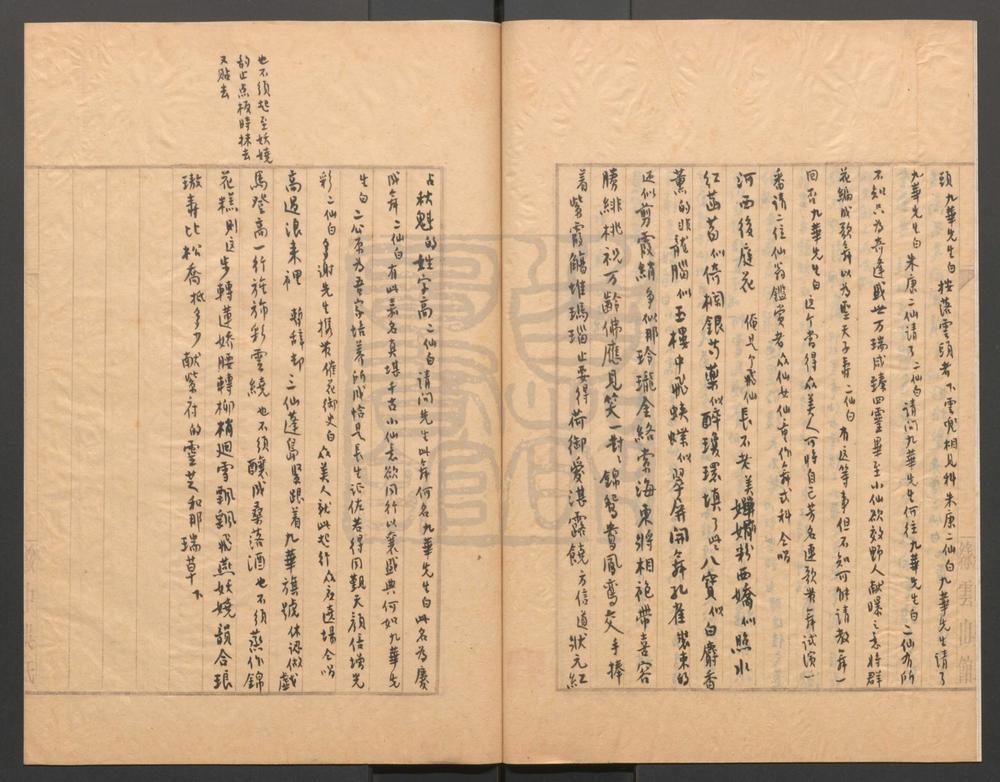 頭九華先生白按落雲頭者下雲幌相見科朱康二仙白九華先生請了
九華先生白朱康二仙請了二仙白請問九華先生何往九華先生白二仙有所
不知只為奇逢盛世万瑞咸臻四靈畢至小仙欲效野人献曝之意将群
花編成歌舞以為聖天子壽二仙白有這等事但不知可能請教舞一
回否九華先生白這个當得众美人可将自己芳名連歌帶舞試演一
番請二位仙翁鑑賞者众仙女仙童作舞式科仝唱
河西後庭花 俺是个飛仙長不老美嬋娟粉西嬌似照水
紅菡萏似倚欄銀芍藥似醉瓊環填了些八寶似白麝香
薰的非龍腦似玉樓中飛蛺蝶似翠屏開舞孔雀裝束的
还似剪霞綃多似那玲瓏金絡索海東将相袍帶喜容
勝緋桃祝万齡佛應見笑一對對錦鴛鴦鳳鸞交手捧
着紫霞觴堆瑪瑙止要得荷御愛湛露饒方信道狀元紅
占秋魁的姓字高二仙白請問先生此舞何名九華先生白此名為慶
成舞二仙白有此嘉名真堪千古小仙意欲同行以襄盛典何如九華先
生白二公原為吾家培養所成恰是長生证佐若得同觐天颜倍增光
彩二仙白多謝先生携帶催花御史白众美人就此起行众应遶場仝唱
高過浪来裡 聨辞却三仙蓬島緊跟着九華旗號休認做戲
馬登高一行旌旆彩雲繞也不須釀成桑落酒也不須蒸作錦
花糕則这步轉蓮嬌腰轉柳梢迴雪飄飄飛燕妖嬈韻合琅
璈壽比松喬抵多少献紫府的靈芝和那瑞草下
也不須起至妖嬈
韵止点板時抹去
又贴去